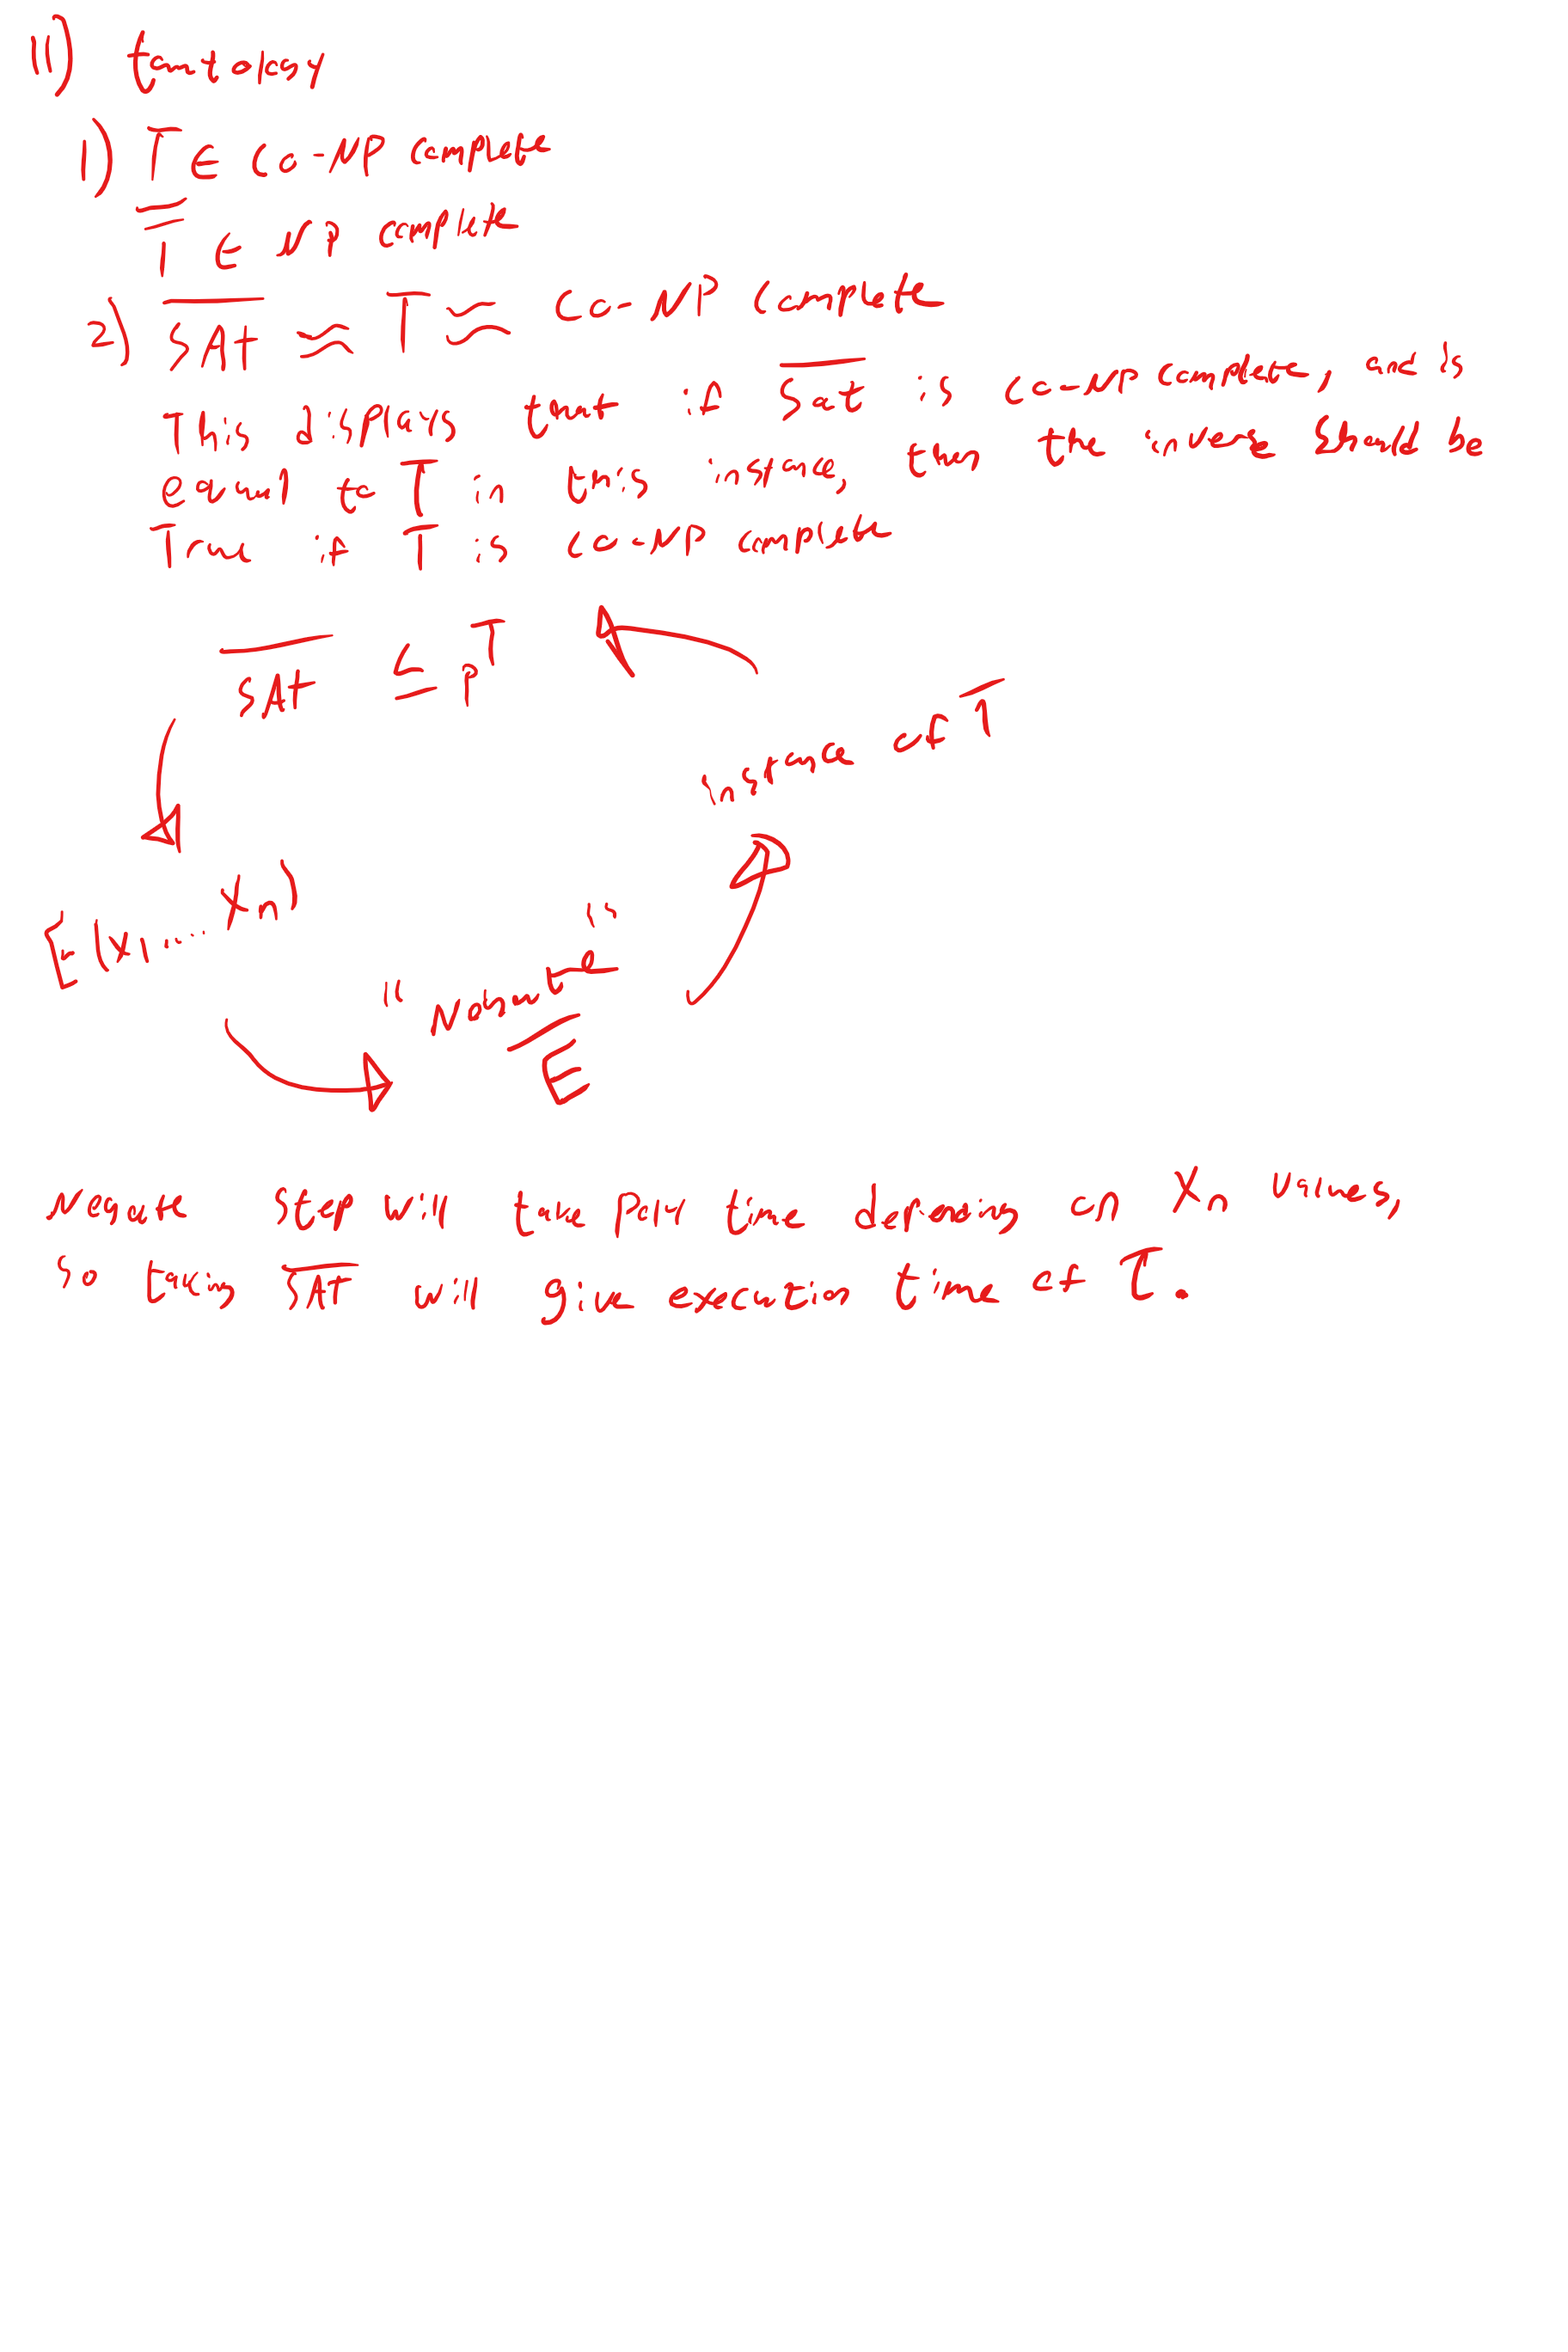 11) tautology
1) T ∈ Co-NP complete
T̿ ∈ NP complete
2) S̅A̅t̅ ≈ T ≈ Co-NP complete
This displays that if S̅a̅t̅ is co-NP complete, and is
equal to T in this instance, then the inverse should be
True if T is co-NP complete
S̅A̅t̅ ≤ p T
instance of T
E(x1,.... Xn)
"
E̅
Negate step will take poly time depending on Xn values,
so taking S̅A̅T̅ will give execution time of T.